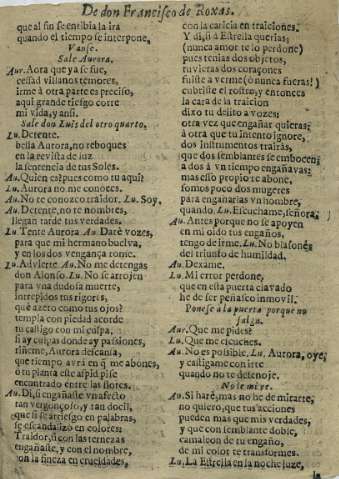 De don Francisco de Roxas.
que al fin se entibia la ira
quando el tiempo se interpone,
Vanse.
Sale Aurora.
Aur. Aora que ya se fue,
cessad villanos temores,
irme à otra parte es preciso,
aqui grande riesgo corre
mi vida, y ansi.
Sale don Luis del otro quarto,
Lu. Detente.
bella Aurora, no reboques
en la revista de luz
la sentencia de tus Soles.
Au. Quien es? pues como tu aqui?
Lu. Aurora no me conoces.
Au. No te conozco traidor. Lu. Soy,
Au. Detente, no te nombres,
llegan tarde tus verdades.
Lu Tente Aurora Au. Darè vozes,
para que mi hermano buelva,
y en los dos vengança tome.
Lu. Advierte. Au. No me detengas
don Alonso. Lu. No se arrojen
para vna dudosa muerte,
intrepidos tus rigores,
què azero como tus ojos?
templa con piedad acorde
tu castigo con mi culpa,
si ay culpas donde ay passiones,
riñeme, Aurora descansa,
que tiempo avrà en q̃ me abones,
ò tu planta este aspid pise
encontrado entre las flores.
Au. Di, si engañaste vn afecto
tan vergonçoso, y tan docil,
que si se arriesgò en palabras,
se escandalizò en colores:
Traidor, si con las ternezas
engañaste, y con el nombre,
con la fineza en crueldades,
con la caricia en traiciones.
Y di, si à Estrella querias;
(nunca amor te lo perdone)
pues tenias dos objetos,
tuvieras dos coraçones
fuiste a verme (ò nunca fueras!)
cubriste el rostro, y entonces
la cara de la traicion
dixo tu delito a vozes:
otra vez que engañar quieras;
à otra que tu intento ignore,
dos instrumentos traìràs,
que dos semblantes se embocen;
a dos à vn tiempo engañavas;
mas esso propio te abone,
somos poco dos mugeres
para engañarlas vn hombre,
quando. Lu. Escuchame, señora;
Au. Antes porque no se apoyen
en mi oido tus engaños,
tengo de irme. Lu. No blasones
del triunfo de humildad.
Au. Dexame.
Lu. Mi error perdone,
que en esta puerta clavado
he de ser peñasco inmovil.
Ponese à la puerta porque no
salga.
Aur. Que me pides?
Lu. Que me escuches.
Au. No es possible. Lu. Aurora, oye;
y castigame con irte
quando no te detenoje.
No le mire.
Au. Si harè, mas no he de mirarte,
no quiero, que tus acciones
pueden mas que mis verdades,
y que con semblante doble,
camaleon de tu engaño,
de mi color te transformes.
Lu. La Estrella en la noche luze,